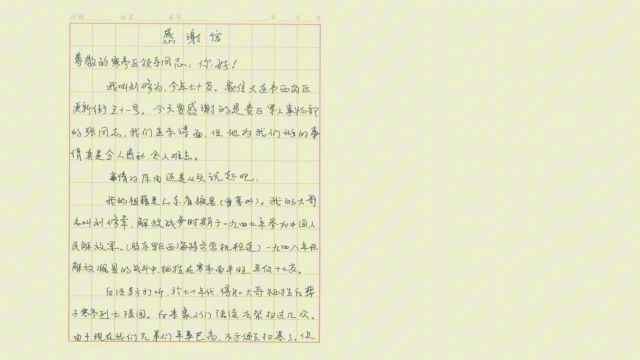 班级 姓名 学号 年 月 日
感谢信
尊敬的寒亭区领导同志：你好！
我叫刘修为，今年七十岁，家住大连市西岗区
更新街三十一号。今天要感谢的是贵区军人事务部
的张同志，我们并未谋面，但他为我们做的事
情真是令人感动，令人难忘。
事情的原由还是从头说起吧，
我的祖籍是山东省掖县（今莱州）。我的大哥
名叫刘修，解放战争时期于一九四七年参加中国人
民解放军。（胶东军区西海独立营机枪连）一九四八年在
解放潍县的战斗中，牺牲在寒亭南半旺，年仅十七岁。
后经多方打听，于七十年代，得知大哥牺牲后葬
于寒亭烈士陵园。后来家人们陆续去祭扫过几次。
由于现在我们兄弟们年事已高，不方便去扫墓了。但